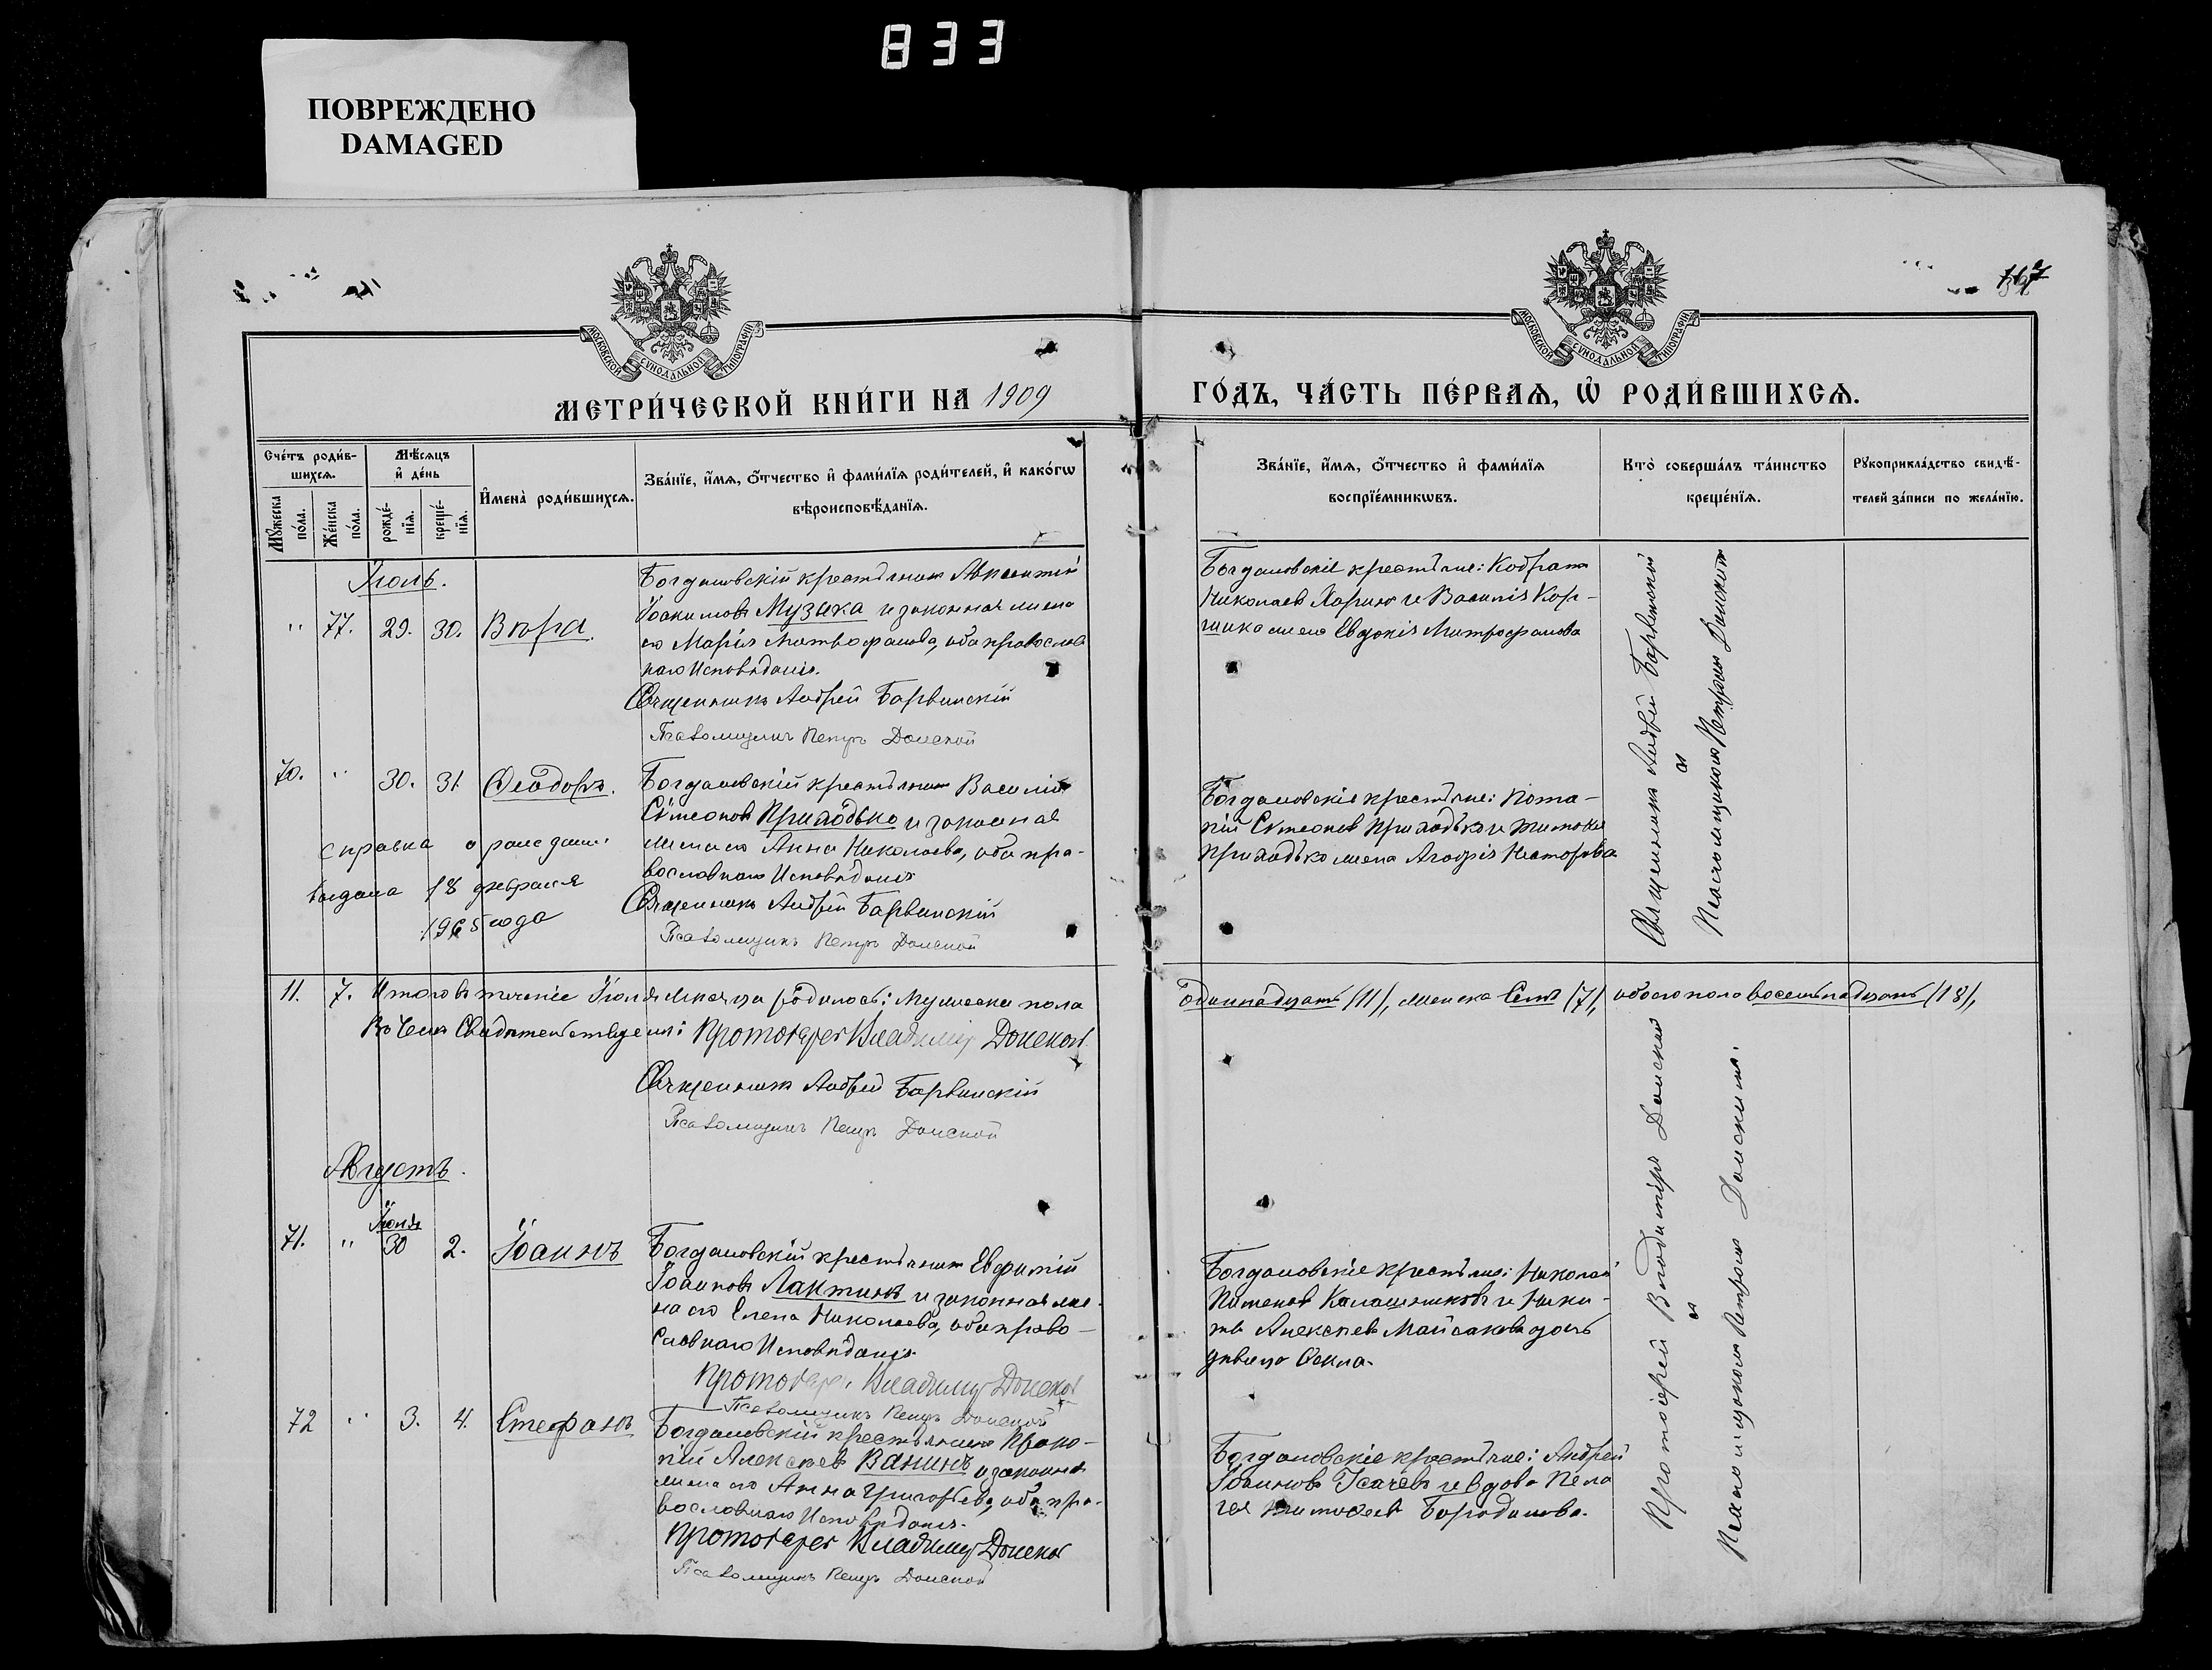 833
ПОВРЕЖДЕНО
DAMAGED
117
МОСКОВСКОЙ СѴНОДАЛЬНОЙ ТИПОГРАФІИ
МОСКОВСКОЙ СѴНОДАЛЬНОЙ ТИПОГРАФІИ
МЕТРИ́ЧЕСКОЙ КНИ́ГИ НА 1909
ГО́ДЪ, ЧА́СТЬ ПЕ́РВАѦ, Ѡ҆ РОДИ́ВШИХСѦ.
Сче́тъ роди́в-
шихсѧ.
Мꙋ́жеска
по́ла.
Же́нска
по́ла.
Мѣ́сѧцъ
и҆ де́нь
рожде́-
нїѧ.
креще́-
нїѧ.
И҆мена̀ роди́вшихсѧ.
Зва́нїе, и҆́мѧ, ѻ҆́тчество и҆ фами́лїѧ роди́телей, и҆ како́гѡ
вѣроисповѣ́данїѧ.
Зва́нїе, и҆́мѧ, ѻ҆́тчество и҆ фами́лїѧ
воспрїе́мникѡвъ.
Кто̀ соверша́лъ та́инство
креще́нїѧ.
Рꙋкоприкла́дство свидѣ́-
телей за́писи по жела́нїю.
Іюль.
" 77. 29. 30. Вѣра.
Богдановскій крестьянинъ Авксентій
Іоакимовъ Музыка и законная жена
его Марія Митрофанова, оба православ
наго Исповѣданія.
Священникъ Андрей Барвинскій
Псаломщикъ Петръ Донской
Богдановскіе крестьяне: Кодратъ
Николаевъ Харин и Василія Кор-
жена Евдокія Митрофанова
Священникъ Андрей Барвинскій
съ
Псаломщикомъ Петромъ Донскимъ
70. " 30. 31. Ѳеодоръ.
Богдановскій крестьянинъ Василій
Сѵмеоновъ Приходько и законная
жена его Анна Николаева, оба пра-
вославнаго Исповѣданія
Священникъ Андрей Барвинскій
Псаломщикъ Петръ Донской
справка о рождении
выдана 18 февраля
1965 года
Богдановскіе крестьяне: Пота-
пій Сѵмеоновъ Приходько и
Приходько жена Агафія Несторова
11. 7. Итого въ теченіе Іюля мѣсяца родилось: мужеска пола
одиннадцать (11), женска семь (7), обоего пола восемьнадцать (18),
Въ чемъ свидѣтельствуемъ: Протоіерей Владиміръ Донской
Священникъ Андрей Барвинскій
Псаломщикъ Петръ Донской
Августъ.
Іюля
71. " 30 2. Іоаннъ
Богдановскій крестьянинъ Евфимій
Іоанновъ Лактинъ и законная же-
на его Елена Николаева, оба право-
славнаго Исповѣданія.
Протоіерей Владиміръ Донской
Псаломщикъ Петръ Донской
Богдановскіе крестьяне: Николай
Пименовъ Калашниковъ и Ники-
ты Алексѣева Майсакова дочь
дѣвица Ѳекла.
Протоіерей Владиміръ Донской
съ
Псаломщикомъ Петромъ Донскимъ.
72 " 3. 4. Стефанъ
Богдановскій крестьянинъ Проко-
пій Алексѣевъ Ванинъ и законная
жена его Анна Григорьева, оба пра-
вославнаго Исповѣданія.
Протоіерей Владиміръ Донской
Псаломщикъ Петръ Донской
Богдановскіе крестьяне: Андрей
Іоанновъ Усачевъ и вдова Пела
гея Бородинова.